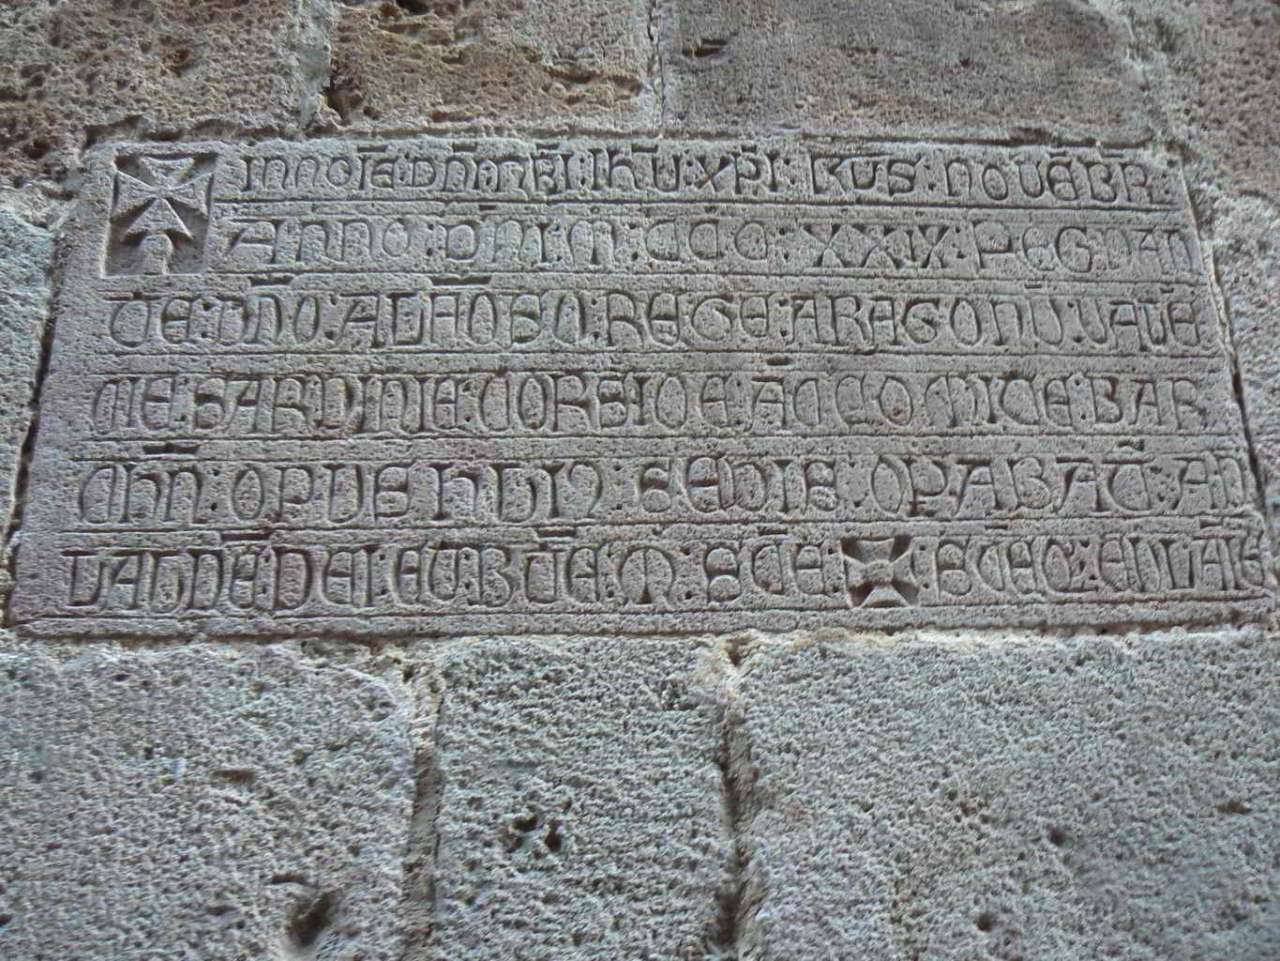 ✠ IN NOIE : DNI : NRI : IHU : XPI : KLS : NOVEBR
ANNO : DNI M : CCC : XXIX : REGNAN
TE : DNO : ALFOS : REGE : ARAGONU : VALE
CIE : SARDINIE CORSICE ACCOMITE : BAR
CHN : OPUS : HUI : ECLESIE
LAUDE DEI : ET BTE : M : SCE ✠